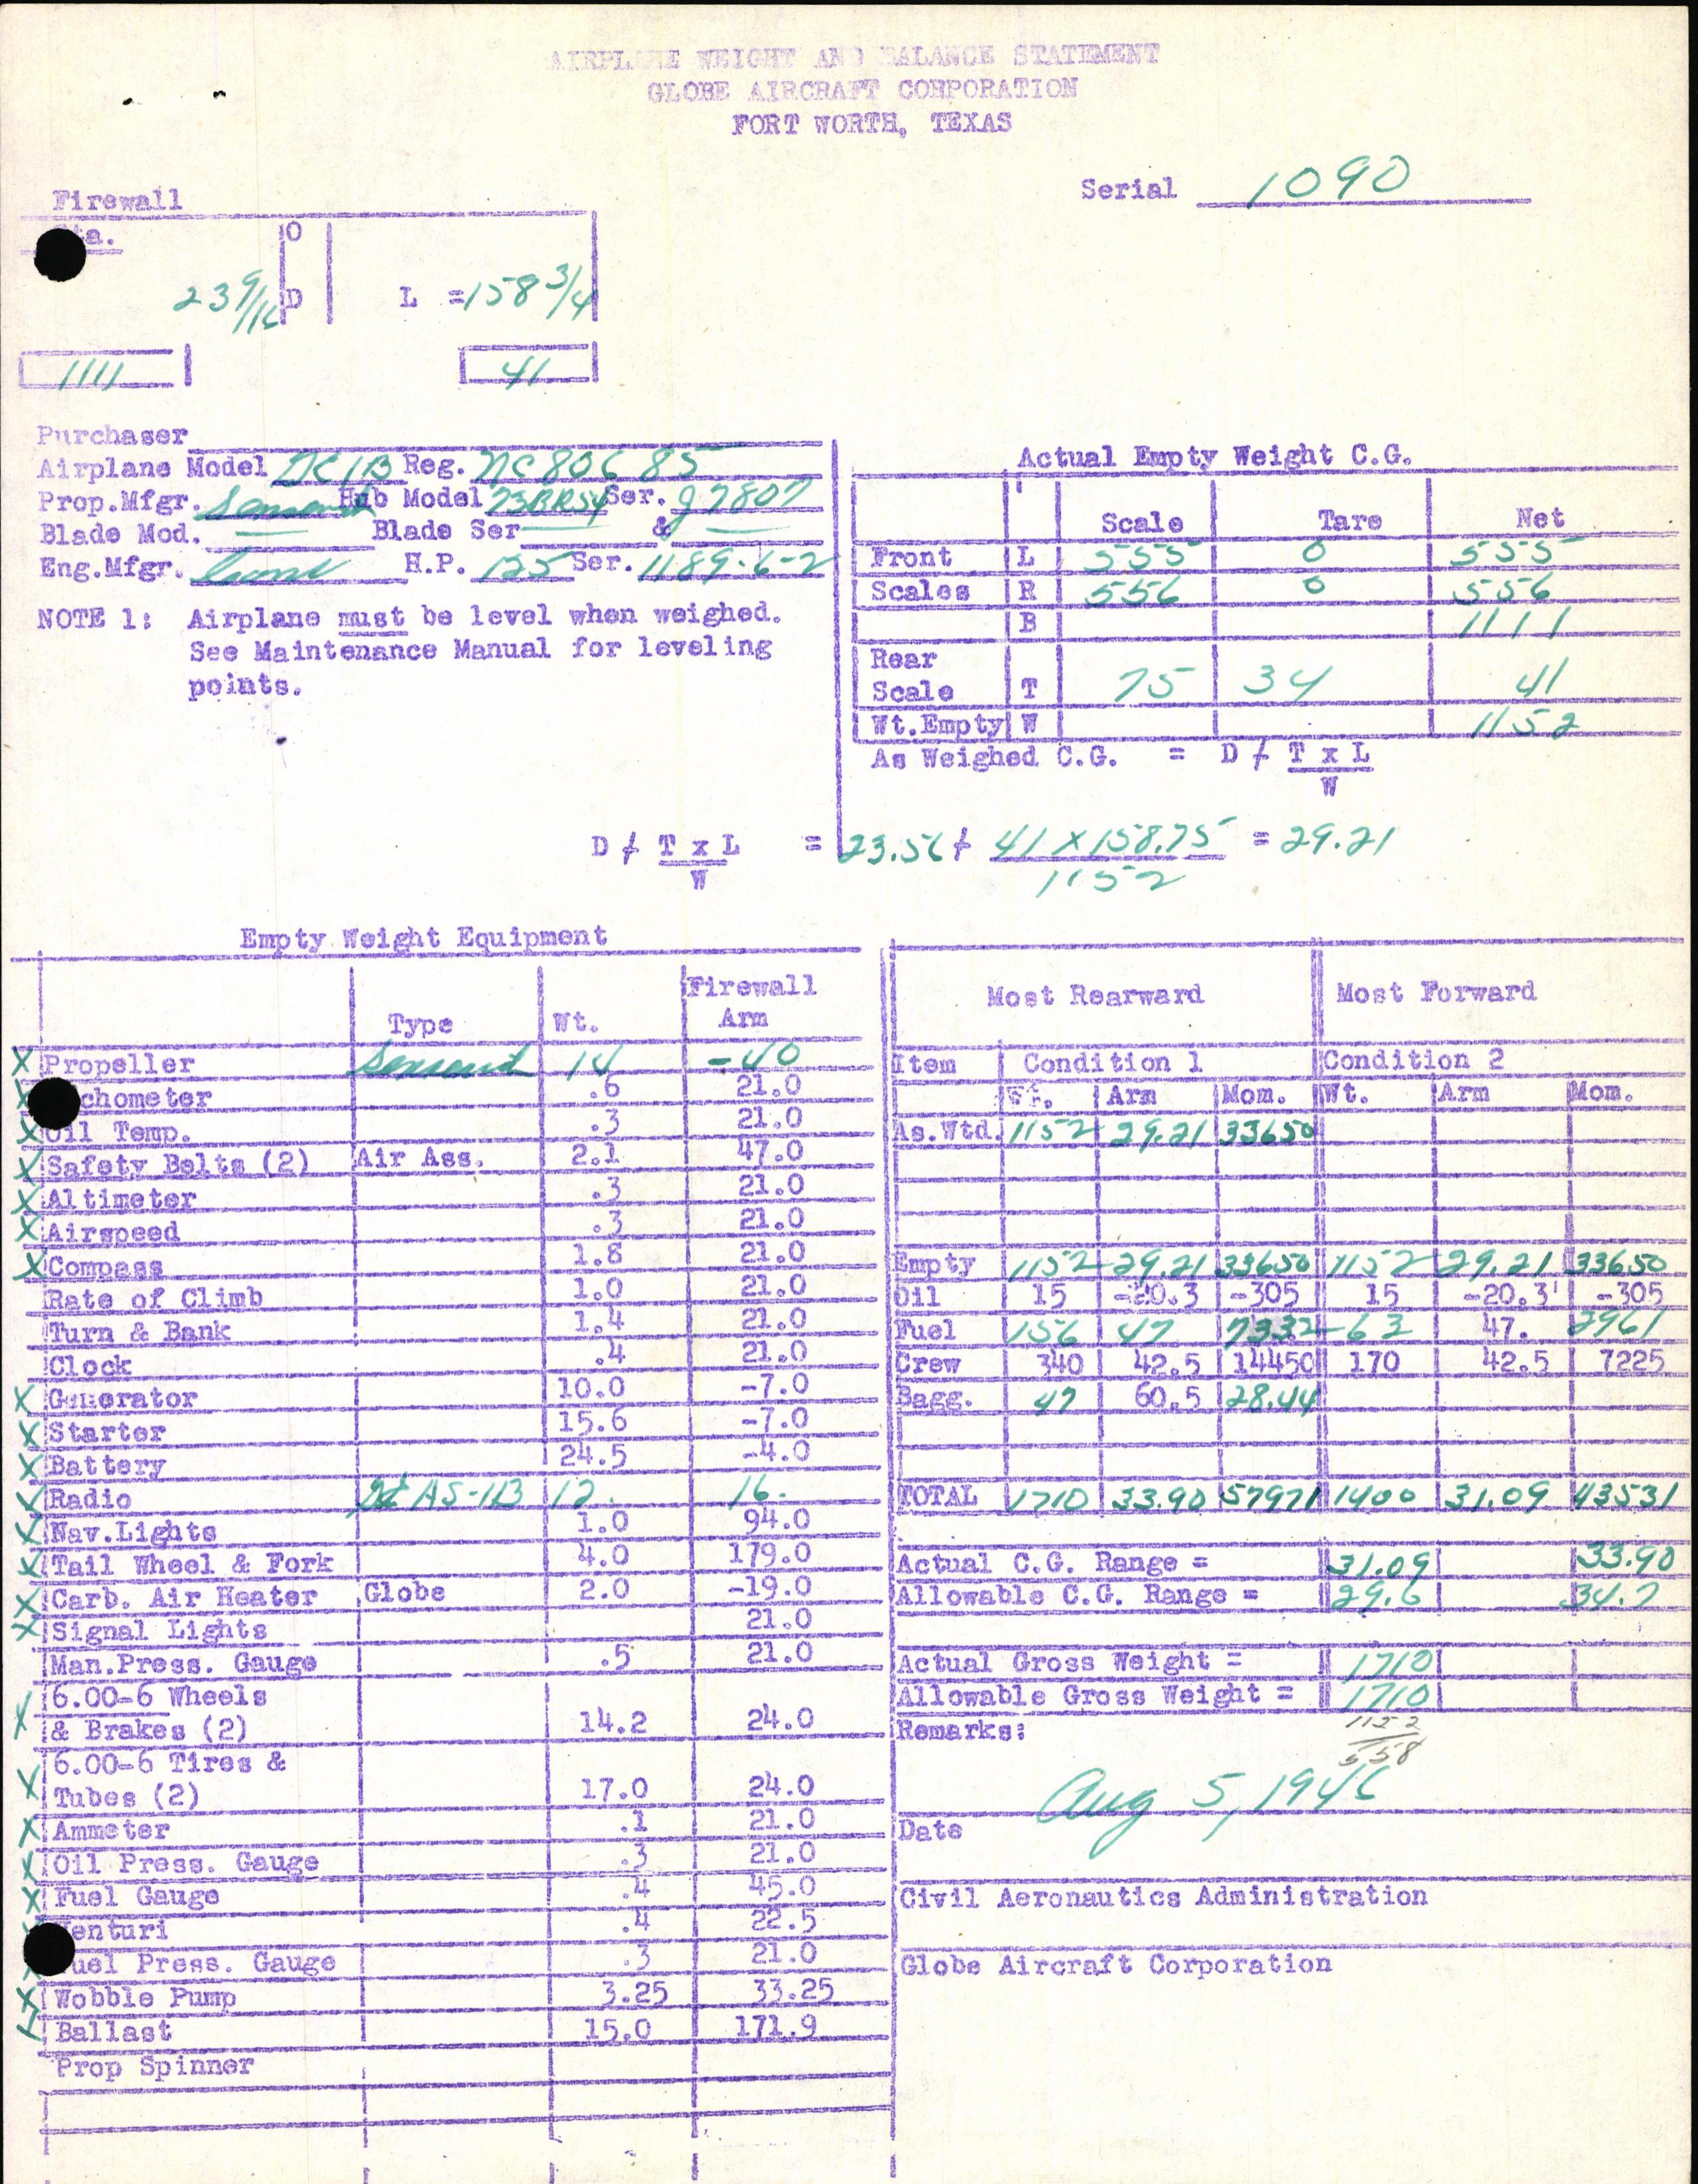 AIRPLANE WEIGHT AND BALANCE STATEMENT
GLOBE AIRCRAFT CORPORATION
FORT WORTH, TEXAS
Serial 1090
Firewall
Sta. O
23 9/16 D L = 158 3/4
1111 41
Purchaser
Airplane Model GC1B Reg. NC80685
Prop.Mfgr. Hub Model 73BR54 Ser. 97807
Blade Mod. — Blade Ser — & —
Eng.Mfgr. Cont H.P. 125 Ser. 1189-6-2
NOTE 1: Airplane must be level when weighed.
See Maintenance Manual for leveling
points.
Actual Empty Weight C.G.
Scale Tare Net
Front L 555 0 555
Scales R 556 0 556
B 1111
Rear
Scale T 75 34 41
Wt.Empty W 1152
As Weighed C.G. = D ⌿ T x L
W
D ⌿ T x L = 23.56 ⌿ 41 X 158.75 = 29.21
W 1152
Empty Weight Equipment
Type Wt. Firewall Arm
X Propeller 14 -40
chometer .6 21.0
X Oil Temp. .3 21.0
X Safety Belts (2) Air Ass. 2.1 47.0
X Altimeter .3 21.0
X Airspeed .3 21.0
X Compass 1.8 21.0
Rate of Climb 1.0 21.0
Turn & Bank 1.4 21.0
Clock .4 21.0
X Generator 10.0 -7.0
X Starter 15.6 -7.0
X Battery 24.5 -4.0
X Radio AS-1B 12. 16.
X Nav.Lights 1.0 94.0
X Tail Wheel & Fork 4.0 179.0
X Carb. Air Heater Globe 2.0 -19.0
X Signal Lights 21.0
Man.Press. Gauge .5 21.0
X 6.00-6 Wheels
& Brakes (2) 14.2 24.0
X 6.00-6 Tires &
Tubes (2) 17.0 24.0
X Ammeter .1 21.0
X Oil Press. Gauge .3 21.0
X Fuel Gauge .4 45.0
enturi .4 22.5
uel Press. Gauge .3 21.0
X Wobble Pump 3.25 33.25
X Ballast 15.0 171.9
Prop Spinner
Most Rearward Most Forward
Item Condition 1 Condition 2
Wt. Arm Mom. Wt. Arm Mom.
As.Wtd. 1152 29.21 33650
Empty 1152 29.21 33650 1152 29.21 33650
Oil 15 -20.3 -305 15 -20.3 -305
Fuel 156 47 7332 63 47. 2961
Crew 340 42.5 14450 170 42.5 7225
Bagg. 47 60.5 28.44
TOTAL 1710 33.90 57971 1400 31.09 43531
Actual C.G. Range = 31.09 33.90
Allowable C.G. Range = 29.6 34.7
Actual Gross Weight = 1710
Allowable Gross Weight = 1710
Remarks: 1152
558
Aug 5, 1946
Date
Civil Aeronautics Administration
Globe Aircraft Corporation